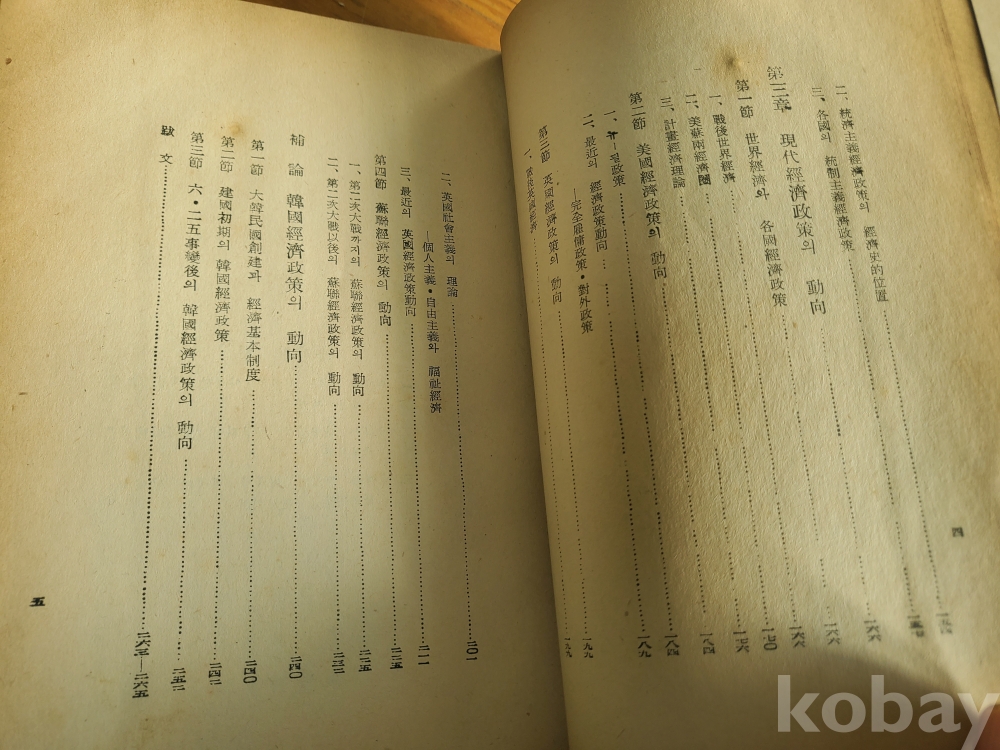 二、統濟主義經濟政策의 經濟史的位置
三、各國의 統制主義經濟政策 一五七
第三章 現代經濟政策의 動向 一六六
第一節 世界經濟와 各國經濟政策 一六六
一、戰後世界經濟 一六六
二、美蘇兩經濟圈 一七〇
三、計畫經濟理論 一七六
第二節 美國經濟政策의 動向 一八四
一、뉴—딜政策 一八四
二、最近의 經濟政策動向 一八九
—完全雇傭政策·對外政策
第三節 英國經濟政策의 動向 一九九
一、戰後英國經濟 一九九
四
二、英國社會主義의 理論 二〇一
—個人主義·自由主義와 福祉經濟
三、最近의 英國經濟政策動向 二一一
第四節 蘇聯經濟政策의 動向 二一五
一、第二次大戰까지의 蘇聯經濟政策의 動向 二二五
二、第二次大戰以後의 蘇聯經濟政策의 動向 二三三
補論 韓國經濟政策의 動向 二四〇
第一節 大韓民國創建과 經濟基本制度 二四〇
第二節 建國初期의 韓國經濟政策 二四二
第三節 六·二五事變後의 韓國經濟政策의 動向 二五二
跋文 二六三—二六五
五
kobay